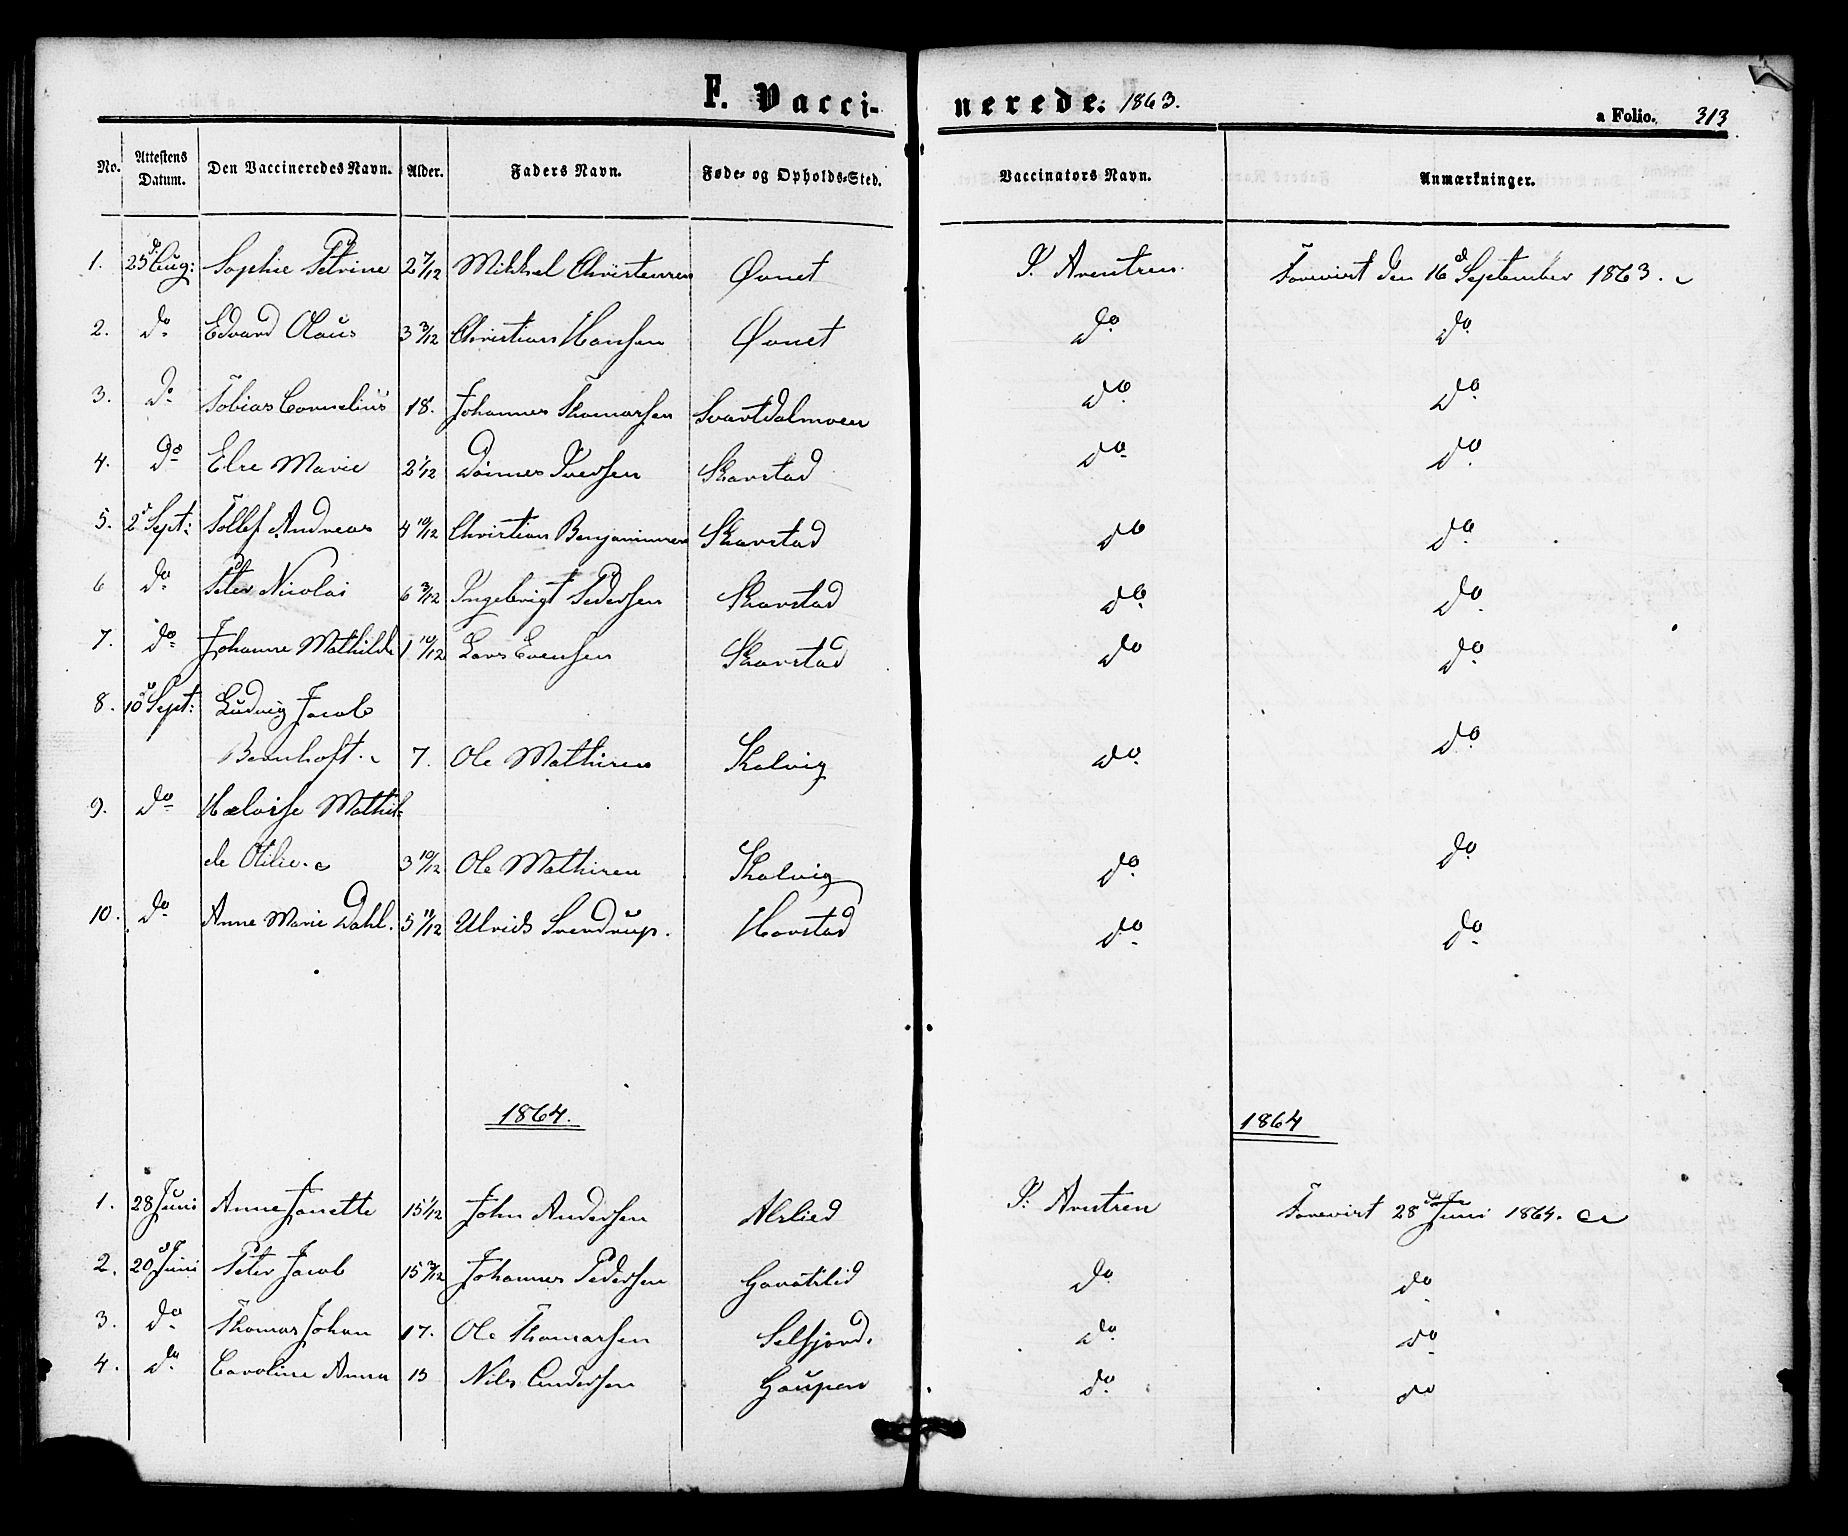 F. Vacci-nerede. 1863.
a Folio. 313
No. Attestens Datum. Den Vaccineredes Navn. Alder. Faders Navn. Føde- og Opholds-Sted. Vaccinators Navn. Anmærkninger.
1. 25d Aug: Sophie Petrine 2 7/12 Mikkel Christensen Øvnet P. Arentsen. Forevist den 16d September 1863.
2. do Edvard Olaus 3 3/12 Christian Hansen Øvnet do do
3. do Tobias Cornelius 18. Johannes Thomassen Svartdalmoen do do
4. do Else Marie 2 1/12 Iversen Skavstad do do
5. 2d Sept: Tollef Andreas 4 10/12 Christian Benjaminsen Skavstad do do
6 do Peter Nicolai 6 3/12 Ingebrigt Pedersen Skavstad do do
7. do Johanne Mathilde 1 10/12 Lars Evensen Skavstad do do
8. 10d Sept: Ludvig Jacob
Bernhoft. 7. Ole Mathisen Kalvig do do
9. do Hæloise Mathil-
de Otilie. 3 10/12 Ole Mathisen Kalvig do do
10. do Anne Marie Dahl. 5 11/12 Ulrich Svendrup. Havstad do do
1864. 1864
1. 28 Juni Anne Janette 15 1/12 John Andersen Alslied P: Arentsen Forevist 28d Juni 1864.
2. 20d Juni Peter Jacob 15 3/12 Johannes Pedersen do do
3. do Thomas Johan 17. Ole Thomassen Selfjord. do do
4. do Caroline Anna 13 Nils Andersen Gaupen do do